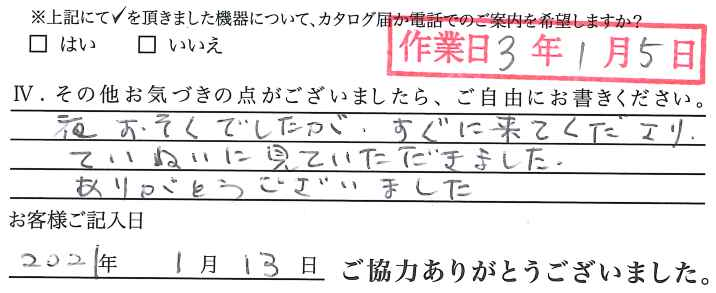 ※上記にて✓を頂きました機器について、カタログ届か電話でのご案内を希望しますか?
□ はい □ いいえ
作業日3年1月5日
Ⅳ．その他お気づきの点がございましたら、ご自由にお書きください。
夜おそくでしたが、すぐに来てくださり、
ていねいに見ていただきました。
ありがとうございました
お客様ご記入日
2021年 1月 13日 ご協力ありがとうございました。